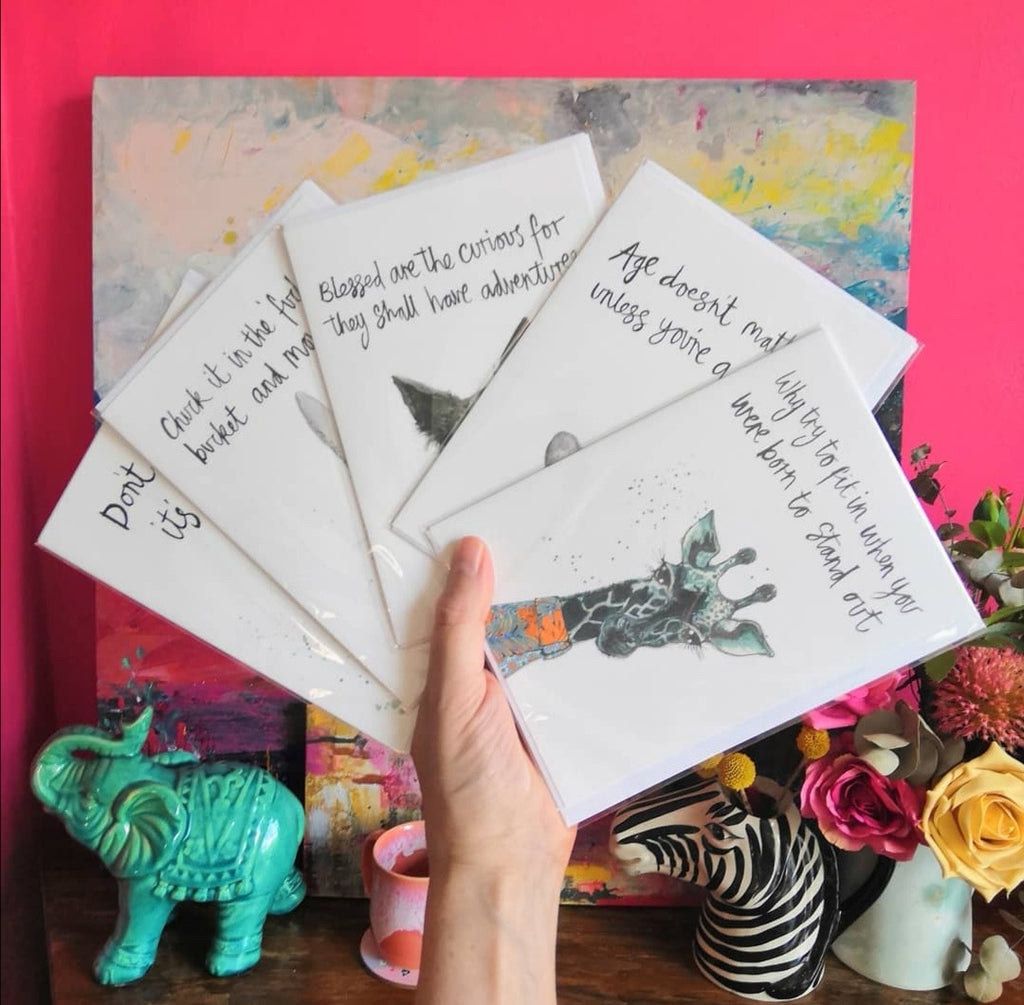 Don't
it's
Chuck it in the
bucket and
Blessed are the curious for
they shall have adventures
Age doesn't
unless you're a
Why try to fit in when you
were born to stand out